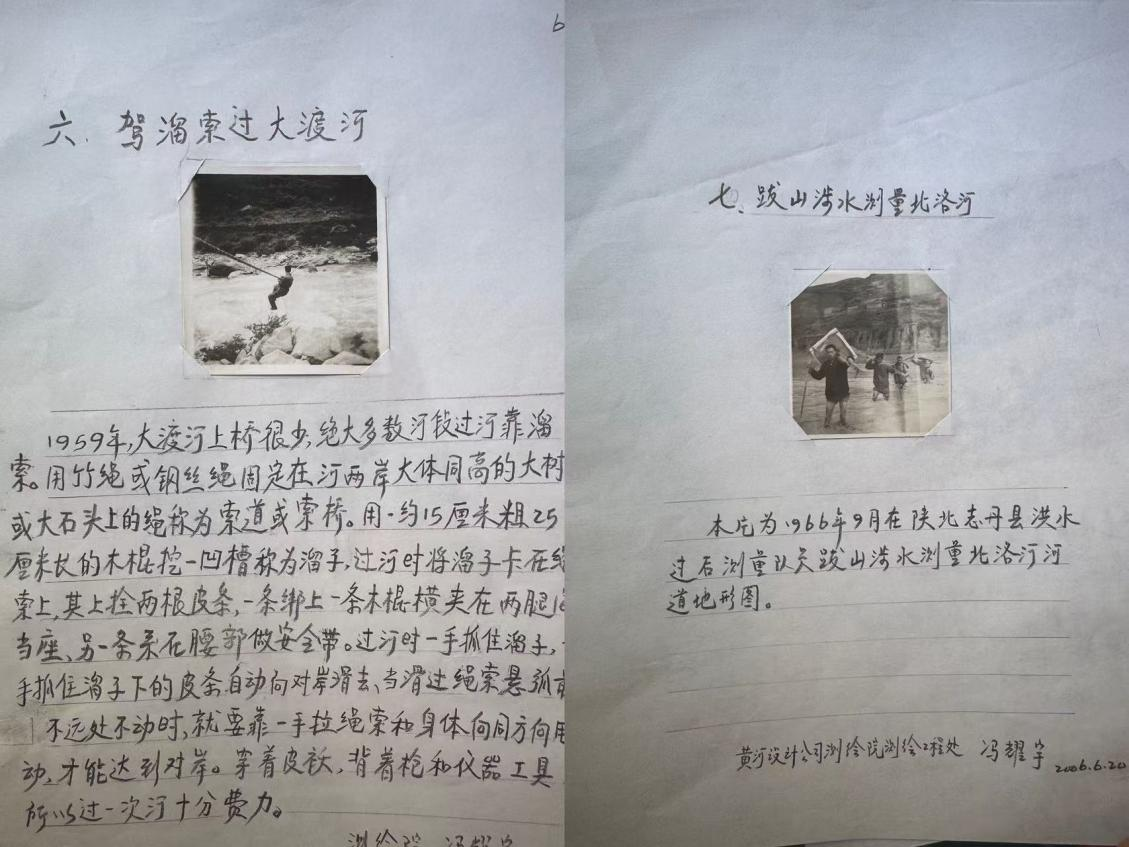 6
六、驾溜索过大渡河
1959年,大渡河上桥很少,绝大多数河段过河靠溜
索。用竹绳或钢丝绳固定在河两岸大体同高的大树
或大石头上的绳称为索道或索桥。用一约15厘米粗25
厘米长的木棍挖一凹槽称为溜子,过河时将溜子卡在绳
索上,其上拴两根皮条,一条绑上一条木棍横夹在两腿
当座、另一条系在腰部做安全带。过河时一手抓住溜子,
手抓住溜子下的皮条自动向对岸滑去、当滑过绳索悬弧
不远处不动时,就要靠一手拉绳索和身体向同方向用
动,才能达到对岸。穿着皮袄,背着枪和仪器工具
所以过一次河十分费力。
测绘院 冯耀宇
七、跋山涉水测量北洛河
本片为1966年9月在陕北志丹县洪水
过后测量队员跋山涉水测量北洛河河
道地形图。
黄河设计公司测绘院测绘工程处 冯耀宇 2006.6.20